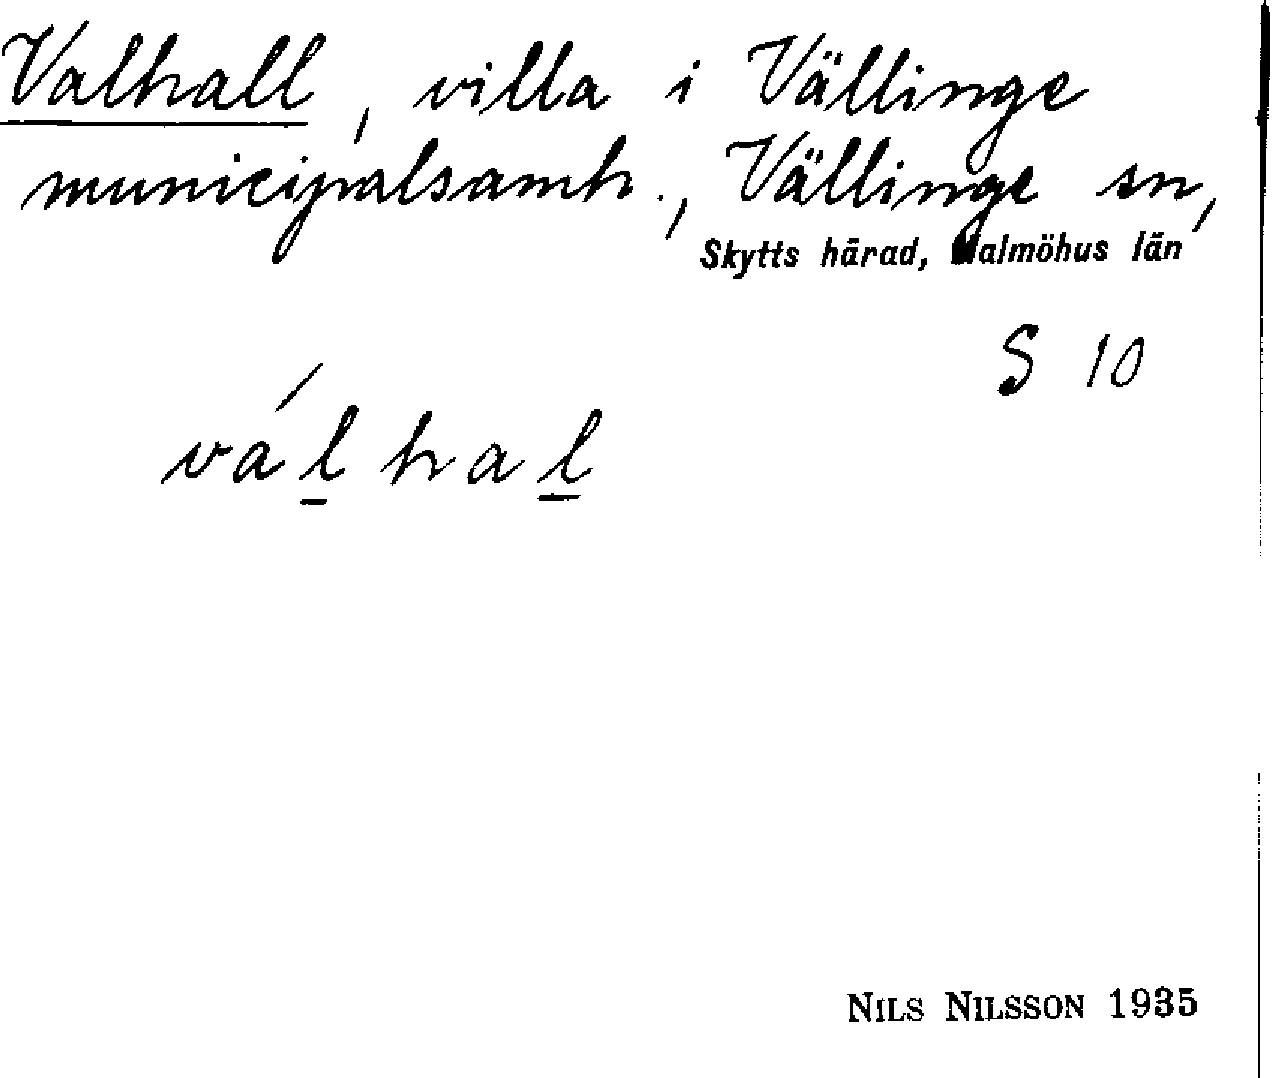 Valhall, villa i Vällinge
municipalsamh., Vällinge sn,
Skytts härad, Malmöhus län
S 10
vál̲ hal̲
NILS NILSSON 1935